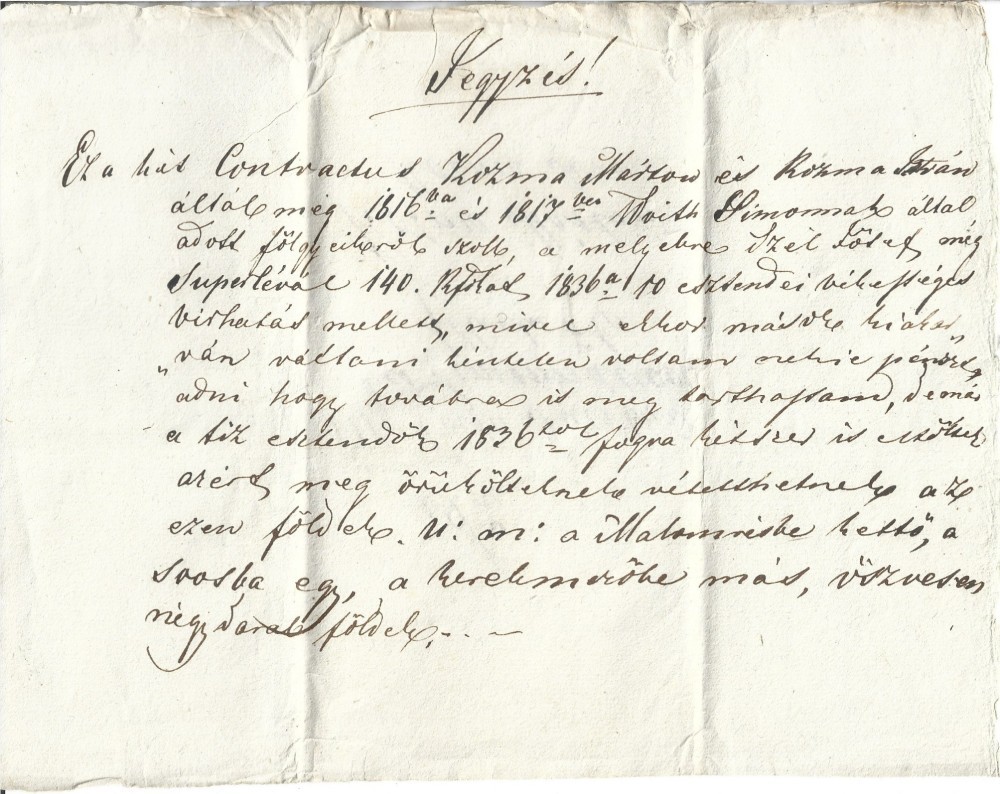 Jegyzés!
Ez a két Contractus Kozma Márton és Kozma István
által még 1816ba és 1817ben Simonnak által
adott földjeikről szoll, a melyekre Szél Jósef még
Superlevál 140. Rftokat 1836a 10 esztendei békességes
birhatás mellett, mivel ekkor mások kiakar„
„ván váltani kéntelen voltam nekie pénzt
adni hogy továbbra is meg tarthassam, de már
a tiz esztendők 1836tol fogva kétszer is eltöltek
azért meg örököltteknek vétetthetnek az
ezen földek. U: m: a Malomrésbe kettő, a
Sosba egy, a kerekmezőbe más, öszvesen
négy darab földek. . - ~